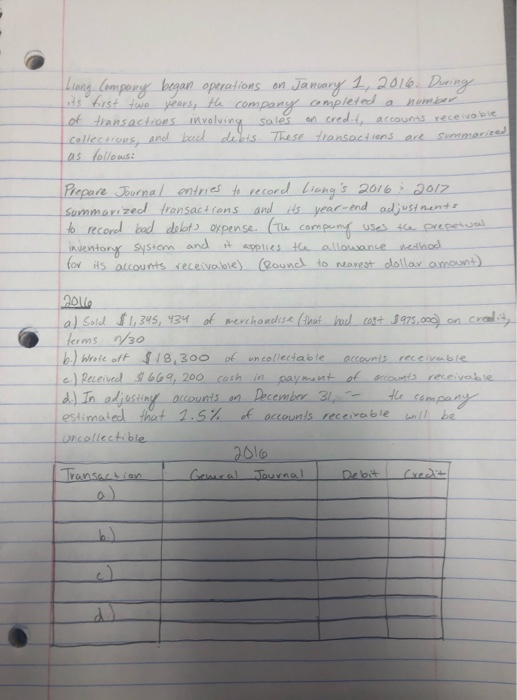 Liang Company began operations on January 1, 2016. During
its first two years, the company completed a number
of transactions involving sales on credit, accounts receivable
collections, and bad debts. These transactions are summarized
as follows:
Prepare Journal entries to record Liang's 2016 ; 2017
summarized transactions and its year-end adjustments
to record bad debts expense. (The company uses the perpetual
inventory system and it applies the allowance method
for its accounts receivable) (Round to nearest dollar amount)
2016
a) Sold $1,345,434 of merchandise (that had cost $975,000) on credit,
terms n/30
b.) Wrote off $18,300 of uncollectable accounts receivable
c.) Received $669,200 cash in payment of accounts receivable
d.) In adjusting accounts on December 31, the company
estimated that 1.5% of accounts receivable will be
uncollectible
2016
Transaction General Journal Debit Credit
a)
b.)
c)
d.)